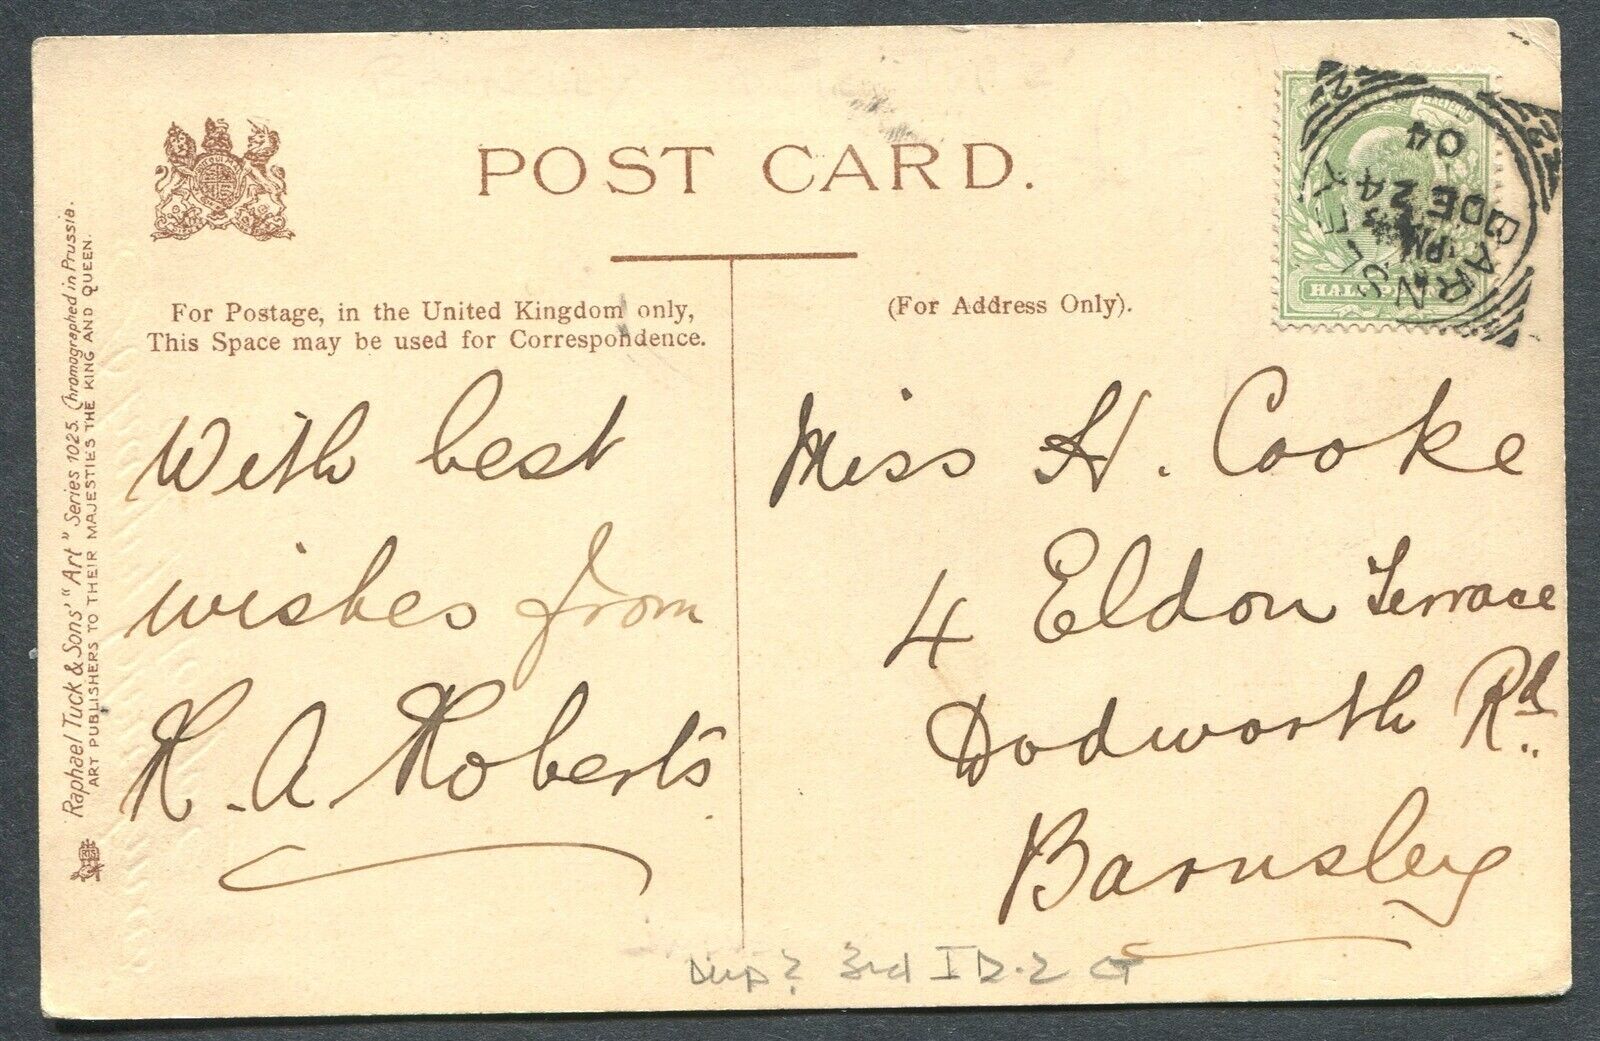 POST CARD.
For Postage, in the United Kingdom only,
This Space may be used for Correspondence.
(For Address Only).
With best
wishes from
H. A. Roberts
Miss H. Cooke
4 Eldon Terrace
Dodworth Rd.
Barnsley
Raphael Tuck & Sons' "Art" Series 1025. Chromographed in Prussia.
ART PUBLISHERS TO THEIR MAJESTIES THE KING AND QUEEN.
BARNSLEY
PM
DE 24
04
22
22
HALF
dup? 3rd